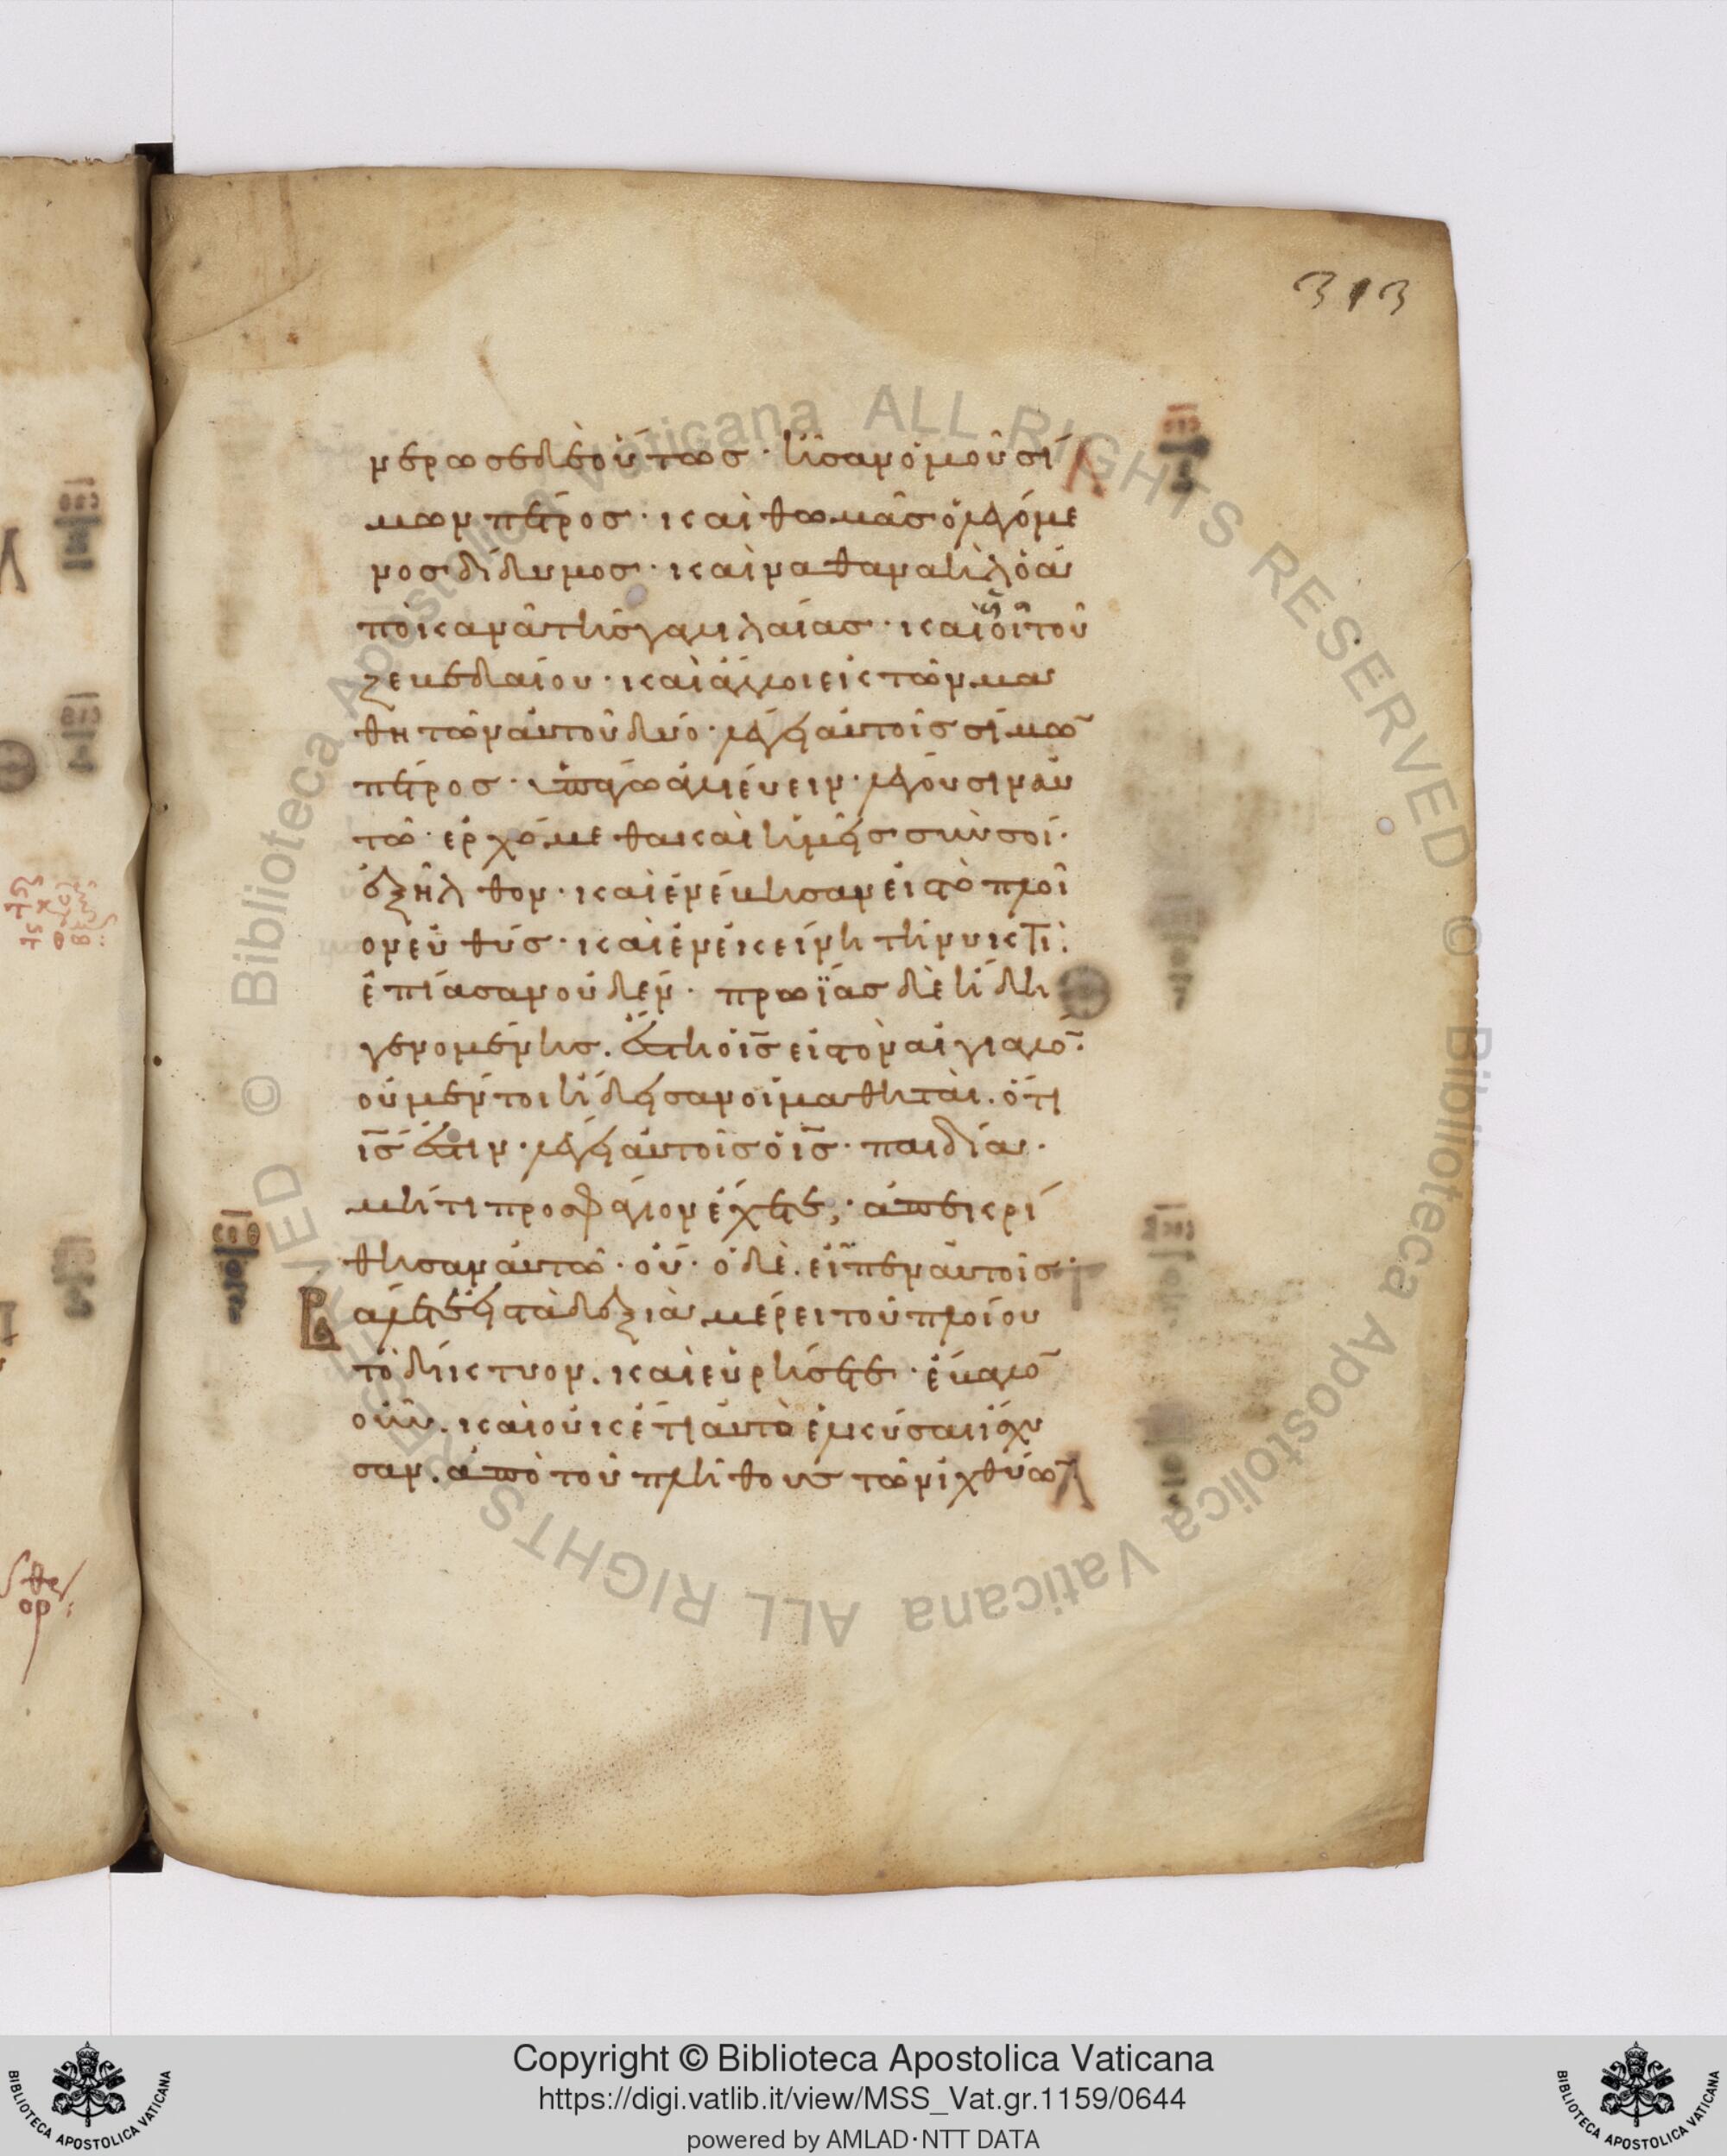 313
νέρωσε δὲ οὕτως · ἦσαν ὁμοῦ σί
μων πέτρος · καὶ θωμᾶς ὁ λεγόμε
νος δίδυμος · καὶ ναθαναὴλ ὁ ἀ
πὸ κανᾶ τῆς γαλιλαίας · καὶ οἱ τοῦ
ζεβεδαίου · καὶ ἄλλοι ἐκ τῶν μα
θητῶν αὐτοῦ δύο · λέγει αὐτοῖς σίμω̄
πέτρος · ὑπάγω ἁλιεύειν · λέγουσιν αὐ
τῶ · ἐρχόμεθα καὶ ἡμεῖς σὺν σοί ·
ἐξῆλθον · καὶ ἐνέβησαν εἰς τὸ πλοῖ
ον εὐθύς · καὶ ἐν ἐκείνη τῆ νυκτὶ
ἐπίασαν οὐδέν · πρωΐας δὲ ἤδη
γενομένης . ἔστη ὁ ις̄ εἰς τὸν αἰγιαλό̄ .
οὐ μέντοι ἤδεισαν οἱ μαθηταὶ . ὅτι
ις̄ ἐστιν · λέγει αὐτοῖς ὁ ις̄ · παιδία ·
μή τι προσφάγιον ἔχετε; · ἀπεκρί
θησαν αὐτῶ · οὔ · ὁ δὲ . εἶπεν αὐτοῖς ·
Βάλετε εἰς τὰ δεξιὰ μέρει τοῦ πλοίου
τὸ δίκτυον . καὶ εὑρήσετε · ἔβαλο̄
οὖν . καὶ οὐκέτι αὐτὸ ἑλκύσαι ἴσχυ
σαν . ἀπὸ τοῦ πλήθους τῶν ἰχθύω̄
Copyright © Biblioteca Apostolica Vaticana
https://digi.vatlib.it/view/MSS_Vat.gr.1159/0644
powered by AMLAD·NTT DATA
BIBLIOTECA APOSTOLICA VATICANA
BIBLIOTECA APOSTOLICA VATICANA
© Biblioteca Apostolica Vaticana ALL RIGHTS RESERVED © Biblioteca Apostolica Vaticana ALL RIGHTS RESERVED